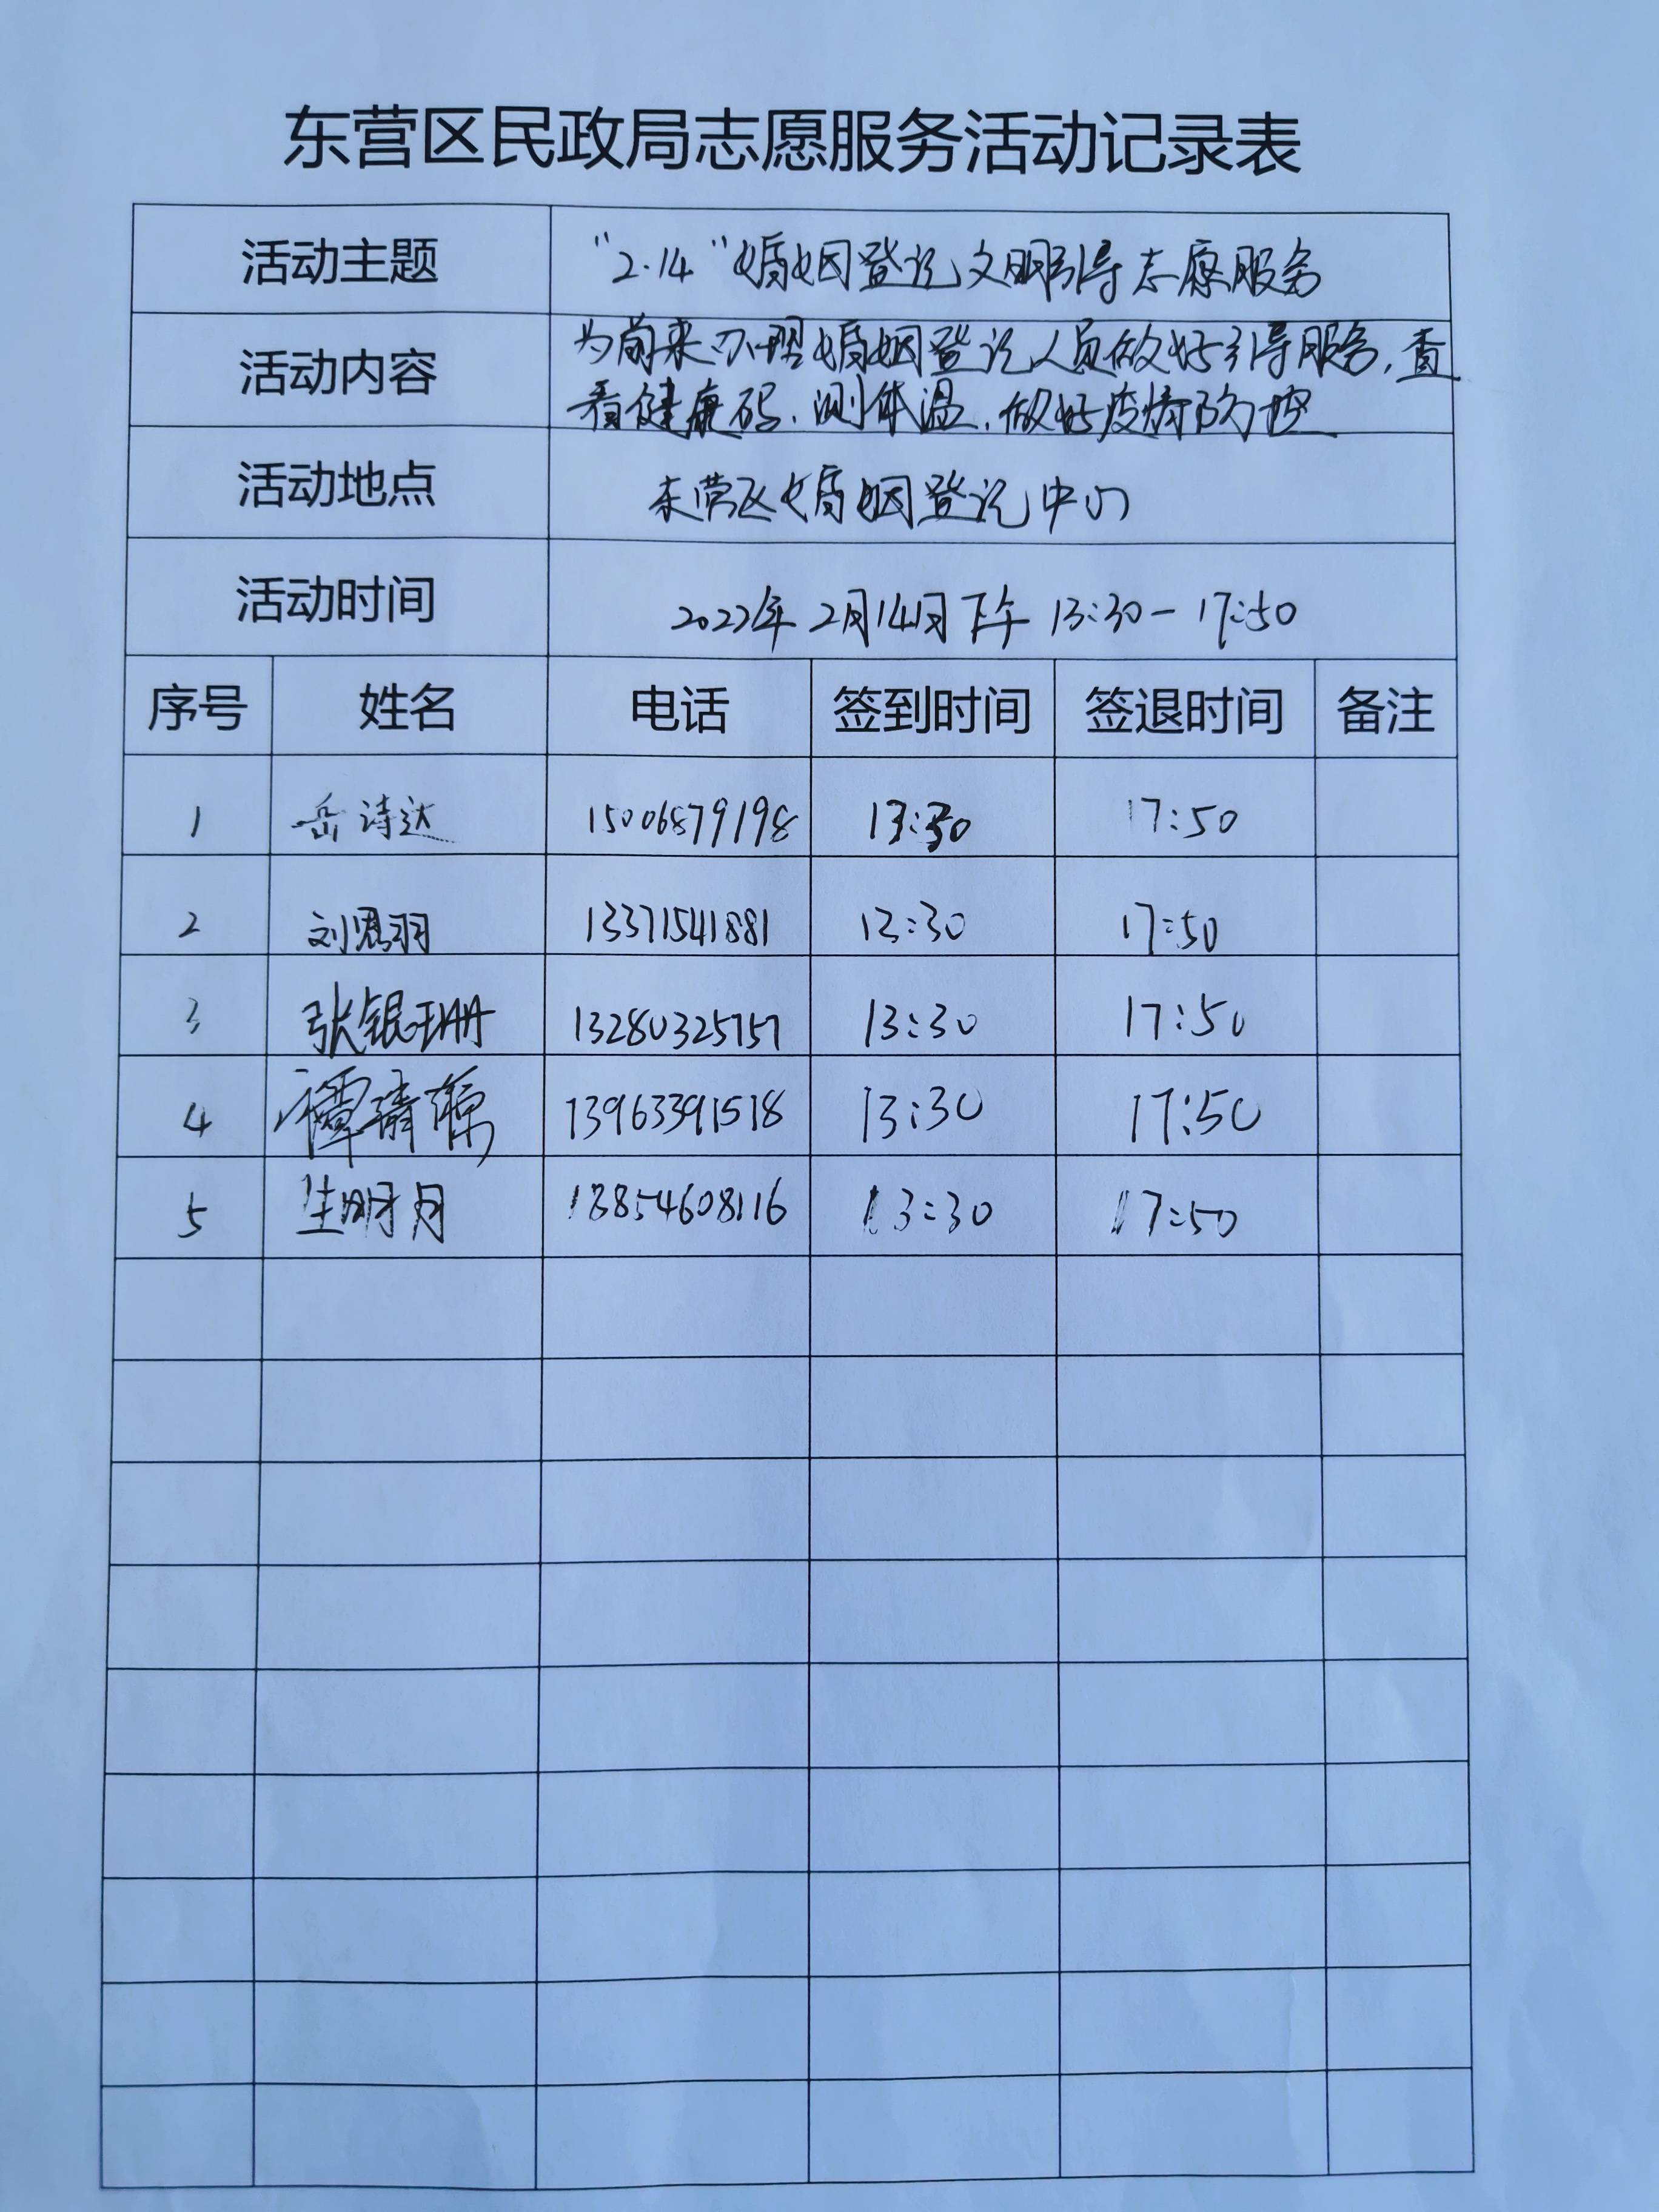 东营区民政局志愿服务活动记录表
活动主题 "2.14"婚姻登记文明引导志愿服务
活动内容 为前来办理婚姻登记人员做好引导服务,查
看健康码、测体温,做好疫情防控
活动地点 东营区婚姻登记中心
活动时间 2022年2月14日下午 13:30-17:50
序号 姓名 电话 签到时间 签退时间 备注
1 岳诗达 15006879198 13:30 17:50
2 刘恩羽 13371541881 13:30 17:50
3 张锟珊 13280325757 13:30 17:50
4 谭清 13963391518 13:30 17:50
5 生明月 13854608116 13:30 17:50